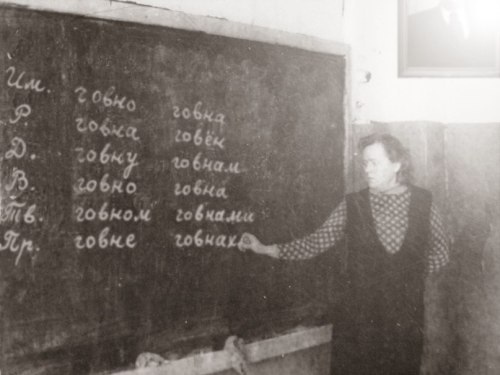 Им. говно говна
Р. говна говён
Д. говну говнам
В. говно говна
Тв. говном говнами
Пр. говне говнах